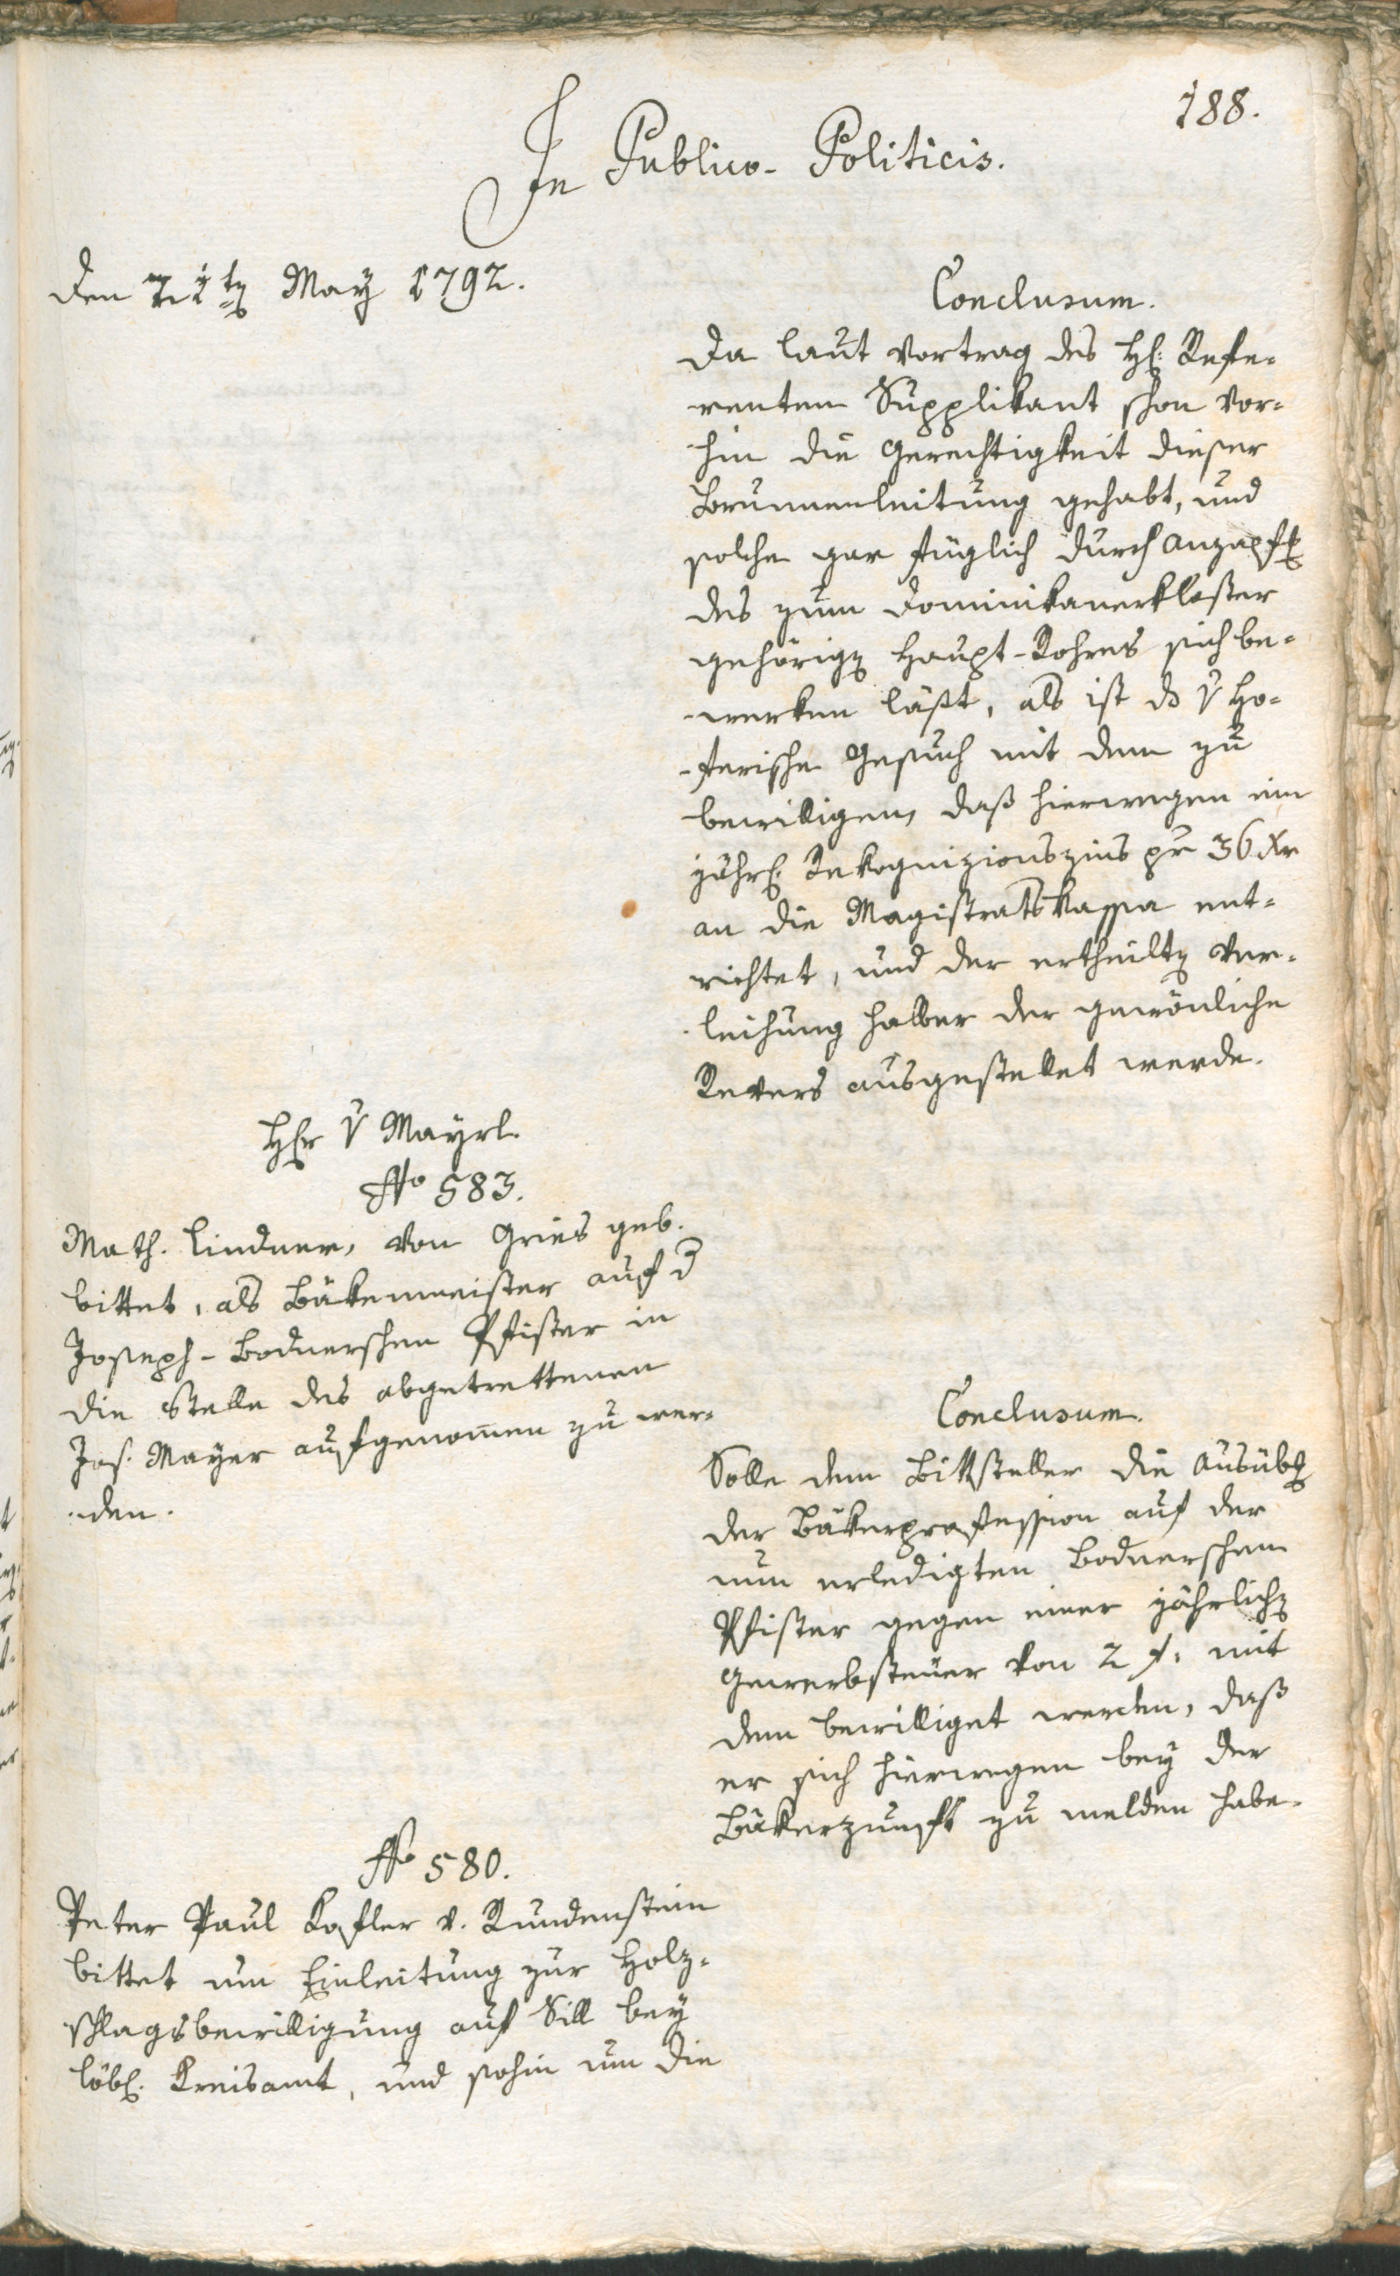 188.
In Publico-Politicis.
den 21tn May 1792.
Conclusum.
Da laut Vortrag des H: Refe=
renten Supplikant schon vor=
hin die Gerechtigkeit dieser
Brunnenleitung gehabt, und
solche gar füglich durch Anzapfg
des zum Dominikanerkloster
gehörign Haupt-Rohres sich be=
werken läßt, als ist ds v Ho=
ferische Gesuch mit dem zu
bewilligen, daß hierwegen ein
jährl. Rekognizionszins pr 36 Xr
an die Magistratskassa ent=
richtet, und der ertheiltn Ver=
leihung halber der gewönliche
Revers ausgestellet werde.
Hr v Mayrl.
No 583.
Math. Lindner, von Gries geb.
bittet, als Bäkenmeister auf d
Joseph-Bodnerschen Pfister in
die Stelle des abgetrettenen
Jos. Mayer aufgenom̅en zu wer=
den.
Conclusum.
Solle dem Bittsteller die Ausübg
der Bäkerprofession auf der
nun erledigten Bodnerschen
Pfister gegen einer jährlichn
Gewerbsteuer von 2 f. mit
dem bewilliget werden, daß
er sich hierwegen bey der
Bäkerzunft zu melden habe.
No 580.
Peter Paul Kofler v. Rundenstein
bittet um Einleitung zur Holz=
schlagsbewilligung auf Sill bey
löbl. Kreisamt, und sohin um die